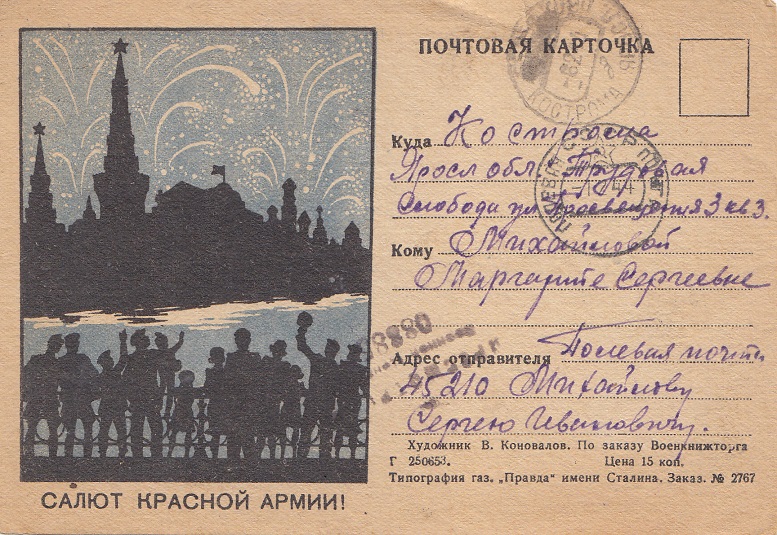 ПОЧТОВАЯ КАРТОЧКА
КОСТРОМА
Куда Кострома
Яросл обл. Трудовая
Слобода ул Просвещения 3 кв 3.
Кому Михайловой
Маргарите Сергеевне
38880
Адрес отправителя Полевая почта
45210 Михайлову
Сергею Ивановичу.
Художник В. Коновалов. По заказу Военкнижторга
Г 250653. Цена 15 коп.
Типография газ. „Правда" имени Сталина. Заказ. № 2767
САЛЮТ КРАСНОЙ АРМИИ!